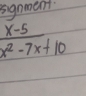 signment.
x-5
x² - 7x + 10